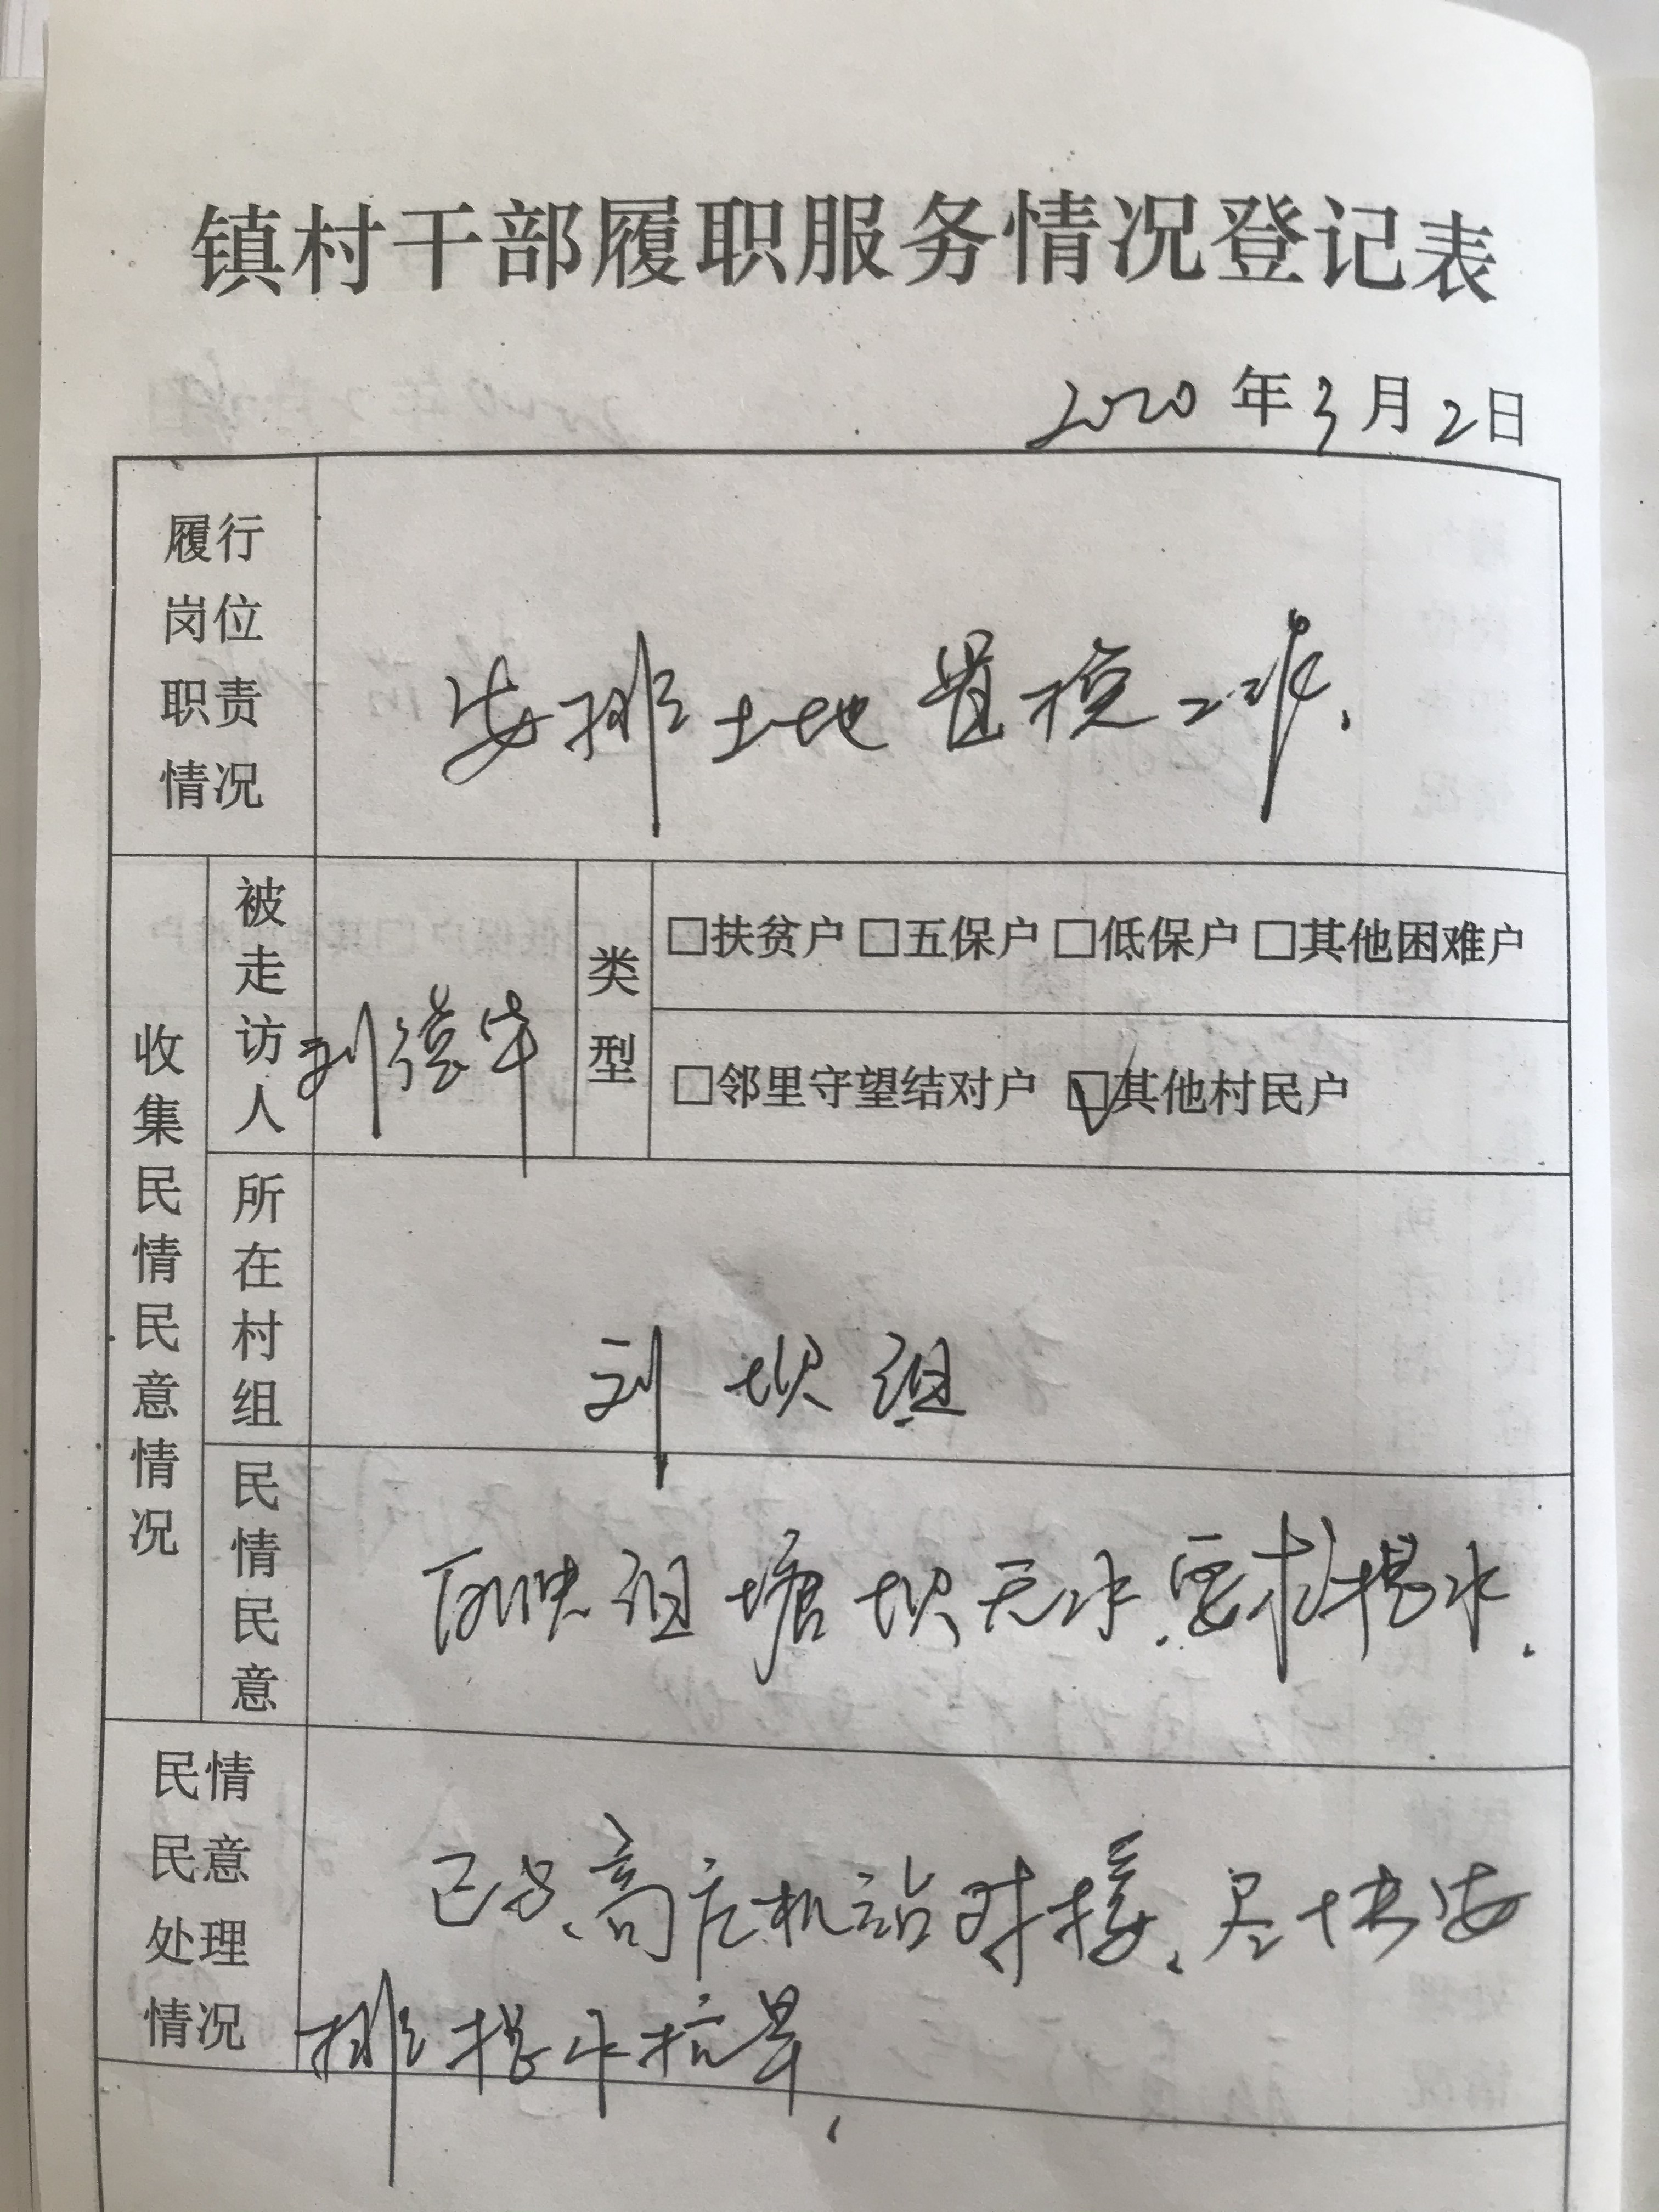 镇村干部履职服务情况登记表
2020年3月2日
履行
岗位
职责
情况
安排土地置换工作.
收集民情民意情况
被走访人
刘德华
类型
□扶贫户 □五保户 □低保户 □其他困难户
□邻里守望结对户 ☑其他村民户
所在村组
刘坝组
民情民意
反映组塘坝无水.要求提水.
民情
民意
处理
情况
已与高庄机站对接,尽快安
排提水抗旱,